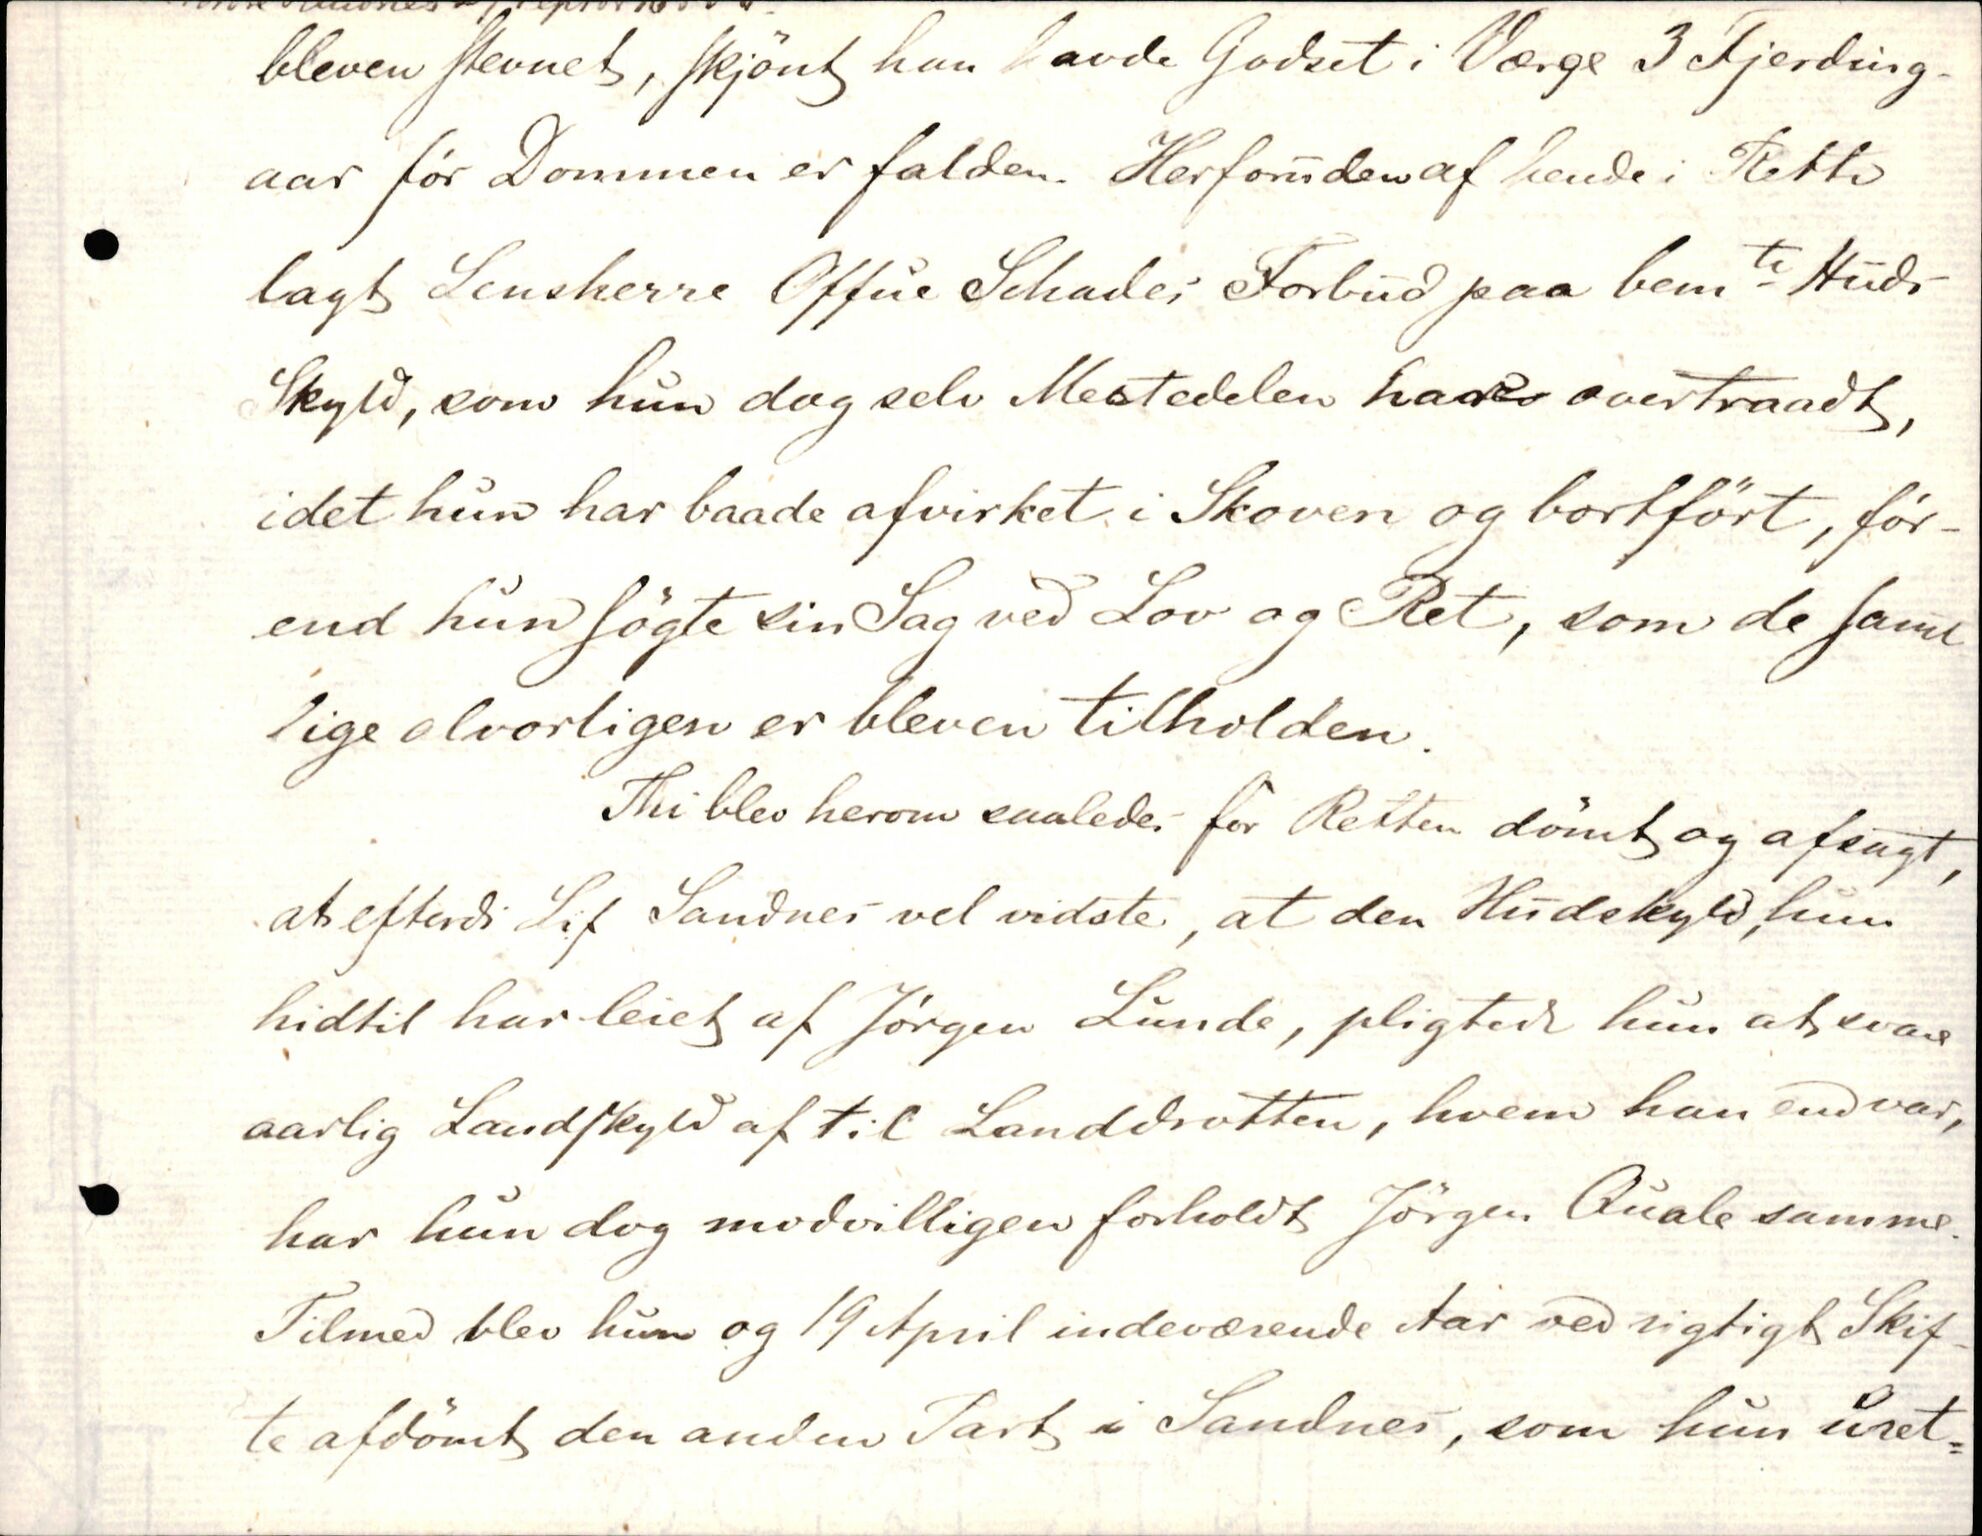 bleven stevnet, skjönt han havde Godset i Værge 3 Fjerding-
aar för Dommen er falden. Herforuden af hende i Rette
lagt Lensherre Offue Schades Forbud paa bemte Huds
Skyld, som hun dog selv Mestedelen har overtraadt,
idet hun har baade afvirket i Skoven og bortfört, för-
end hun sögte sin Sag ved Lov og Ret, som de samt
lige alvorligen er bleven tilholden.
Thi blev herom saaledes for Retten dömt og afsagt,
at efterdi Lif Sandnes vel vidste, at den Hudskyld, hun
hidtil har leiet af Jörgen Lunde, pligtede hun at svare
aarlig Landskyld af til Landdrotten, hvem han end var,
har hun dog modvilligen forholdt Jörgen Quale samme.
Tilmed blev hun og 19 April indeværende Aar ved rigtigt Skif-
te afdömt den anden Part i Sandnes, som hun uret=